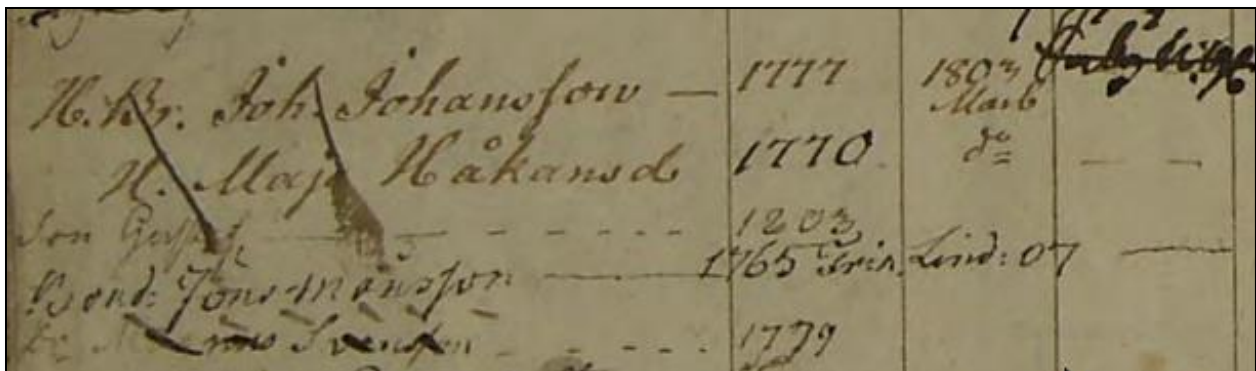 H. Br. Joh. Johansson — 1777 1803
Marb
H. Maj Håkansd 1770 d:o — —
Son Gustaf — — — — — 1803
Bond: Jöns Månsson — 1765 Lind: 07 —
Svensson - - - - 1779